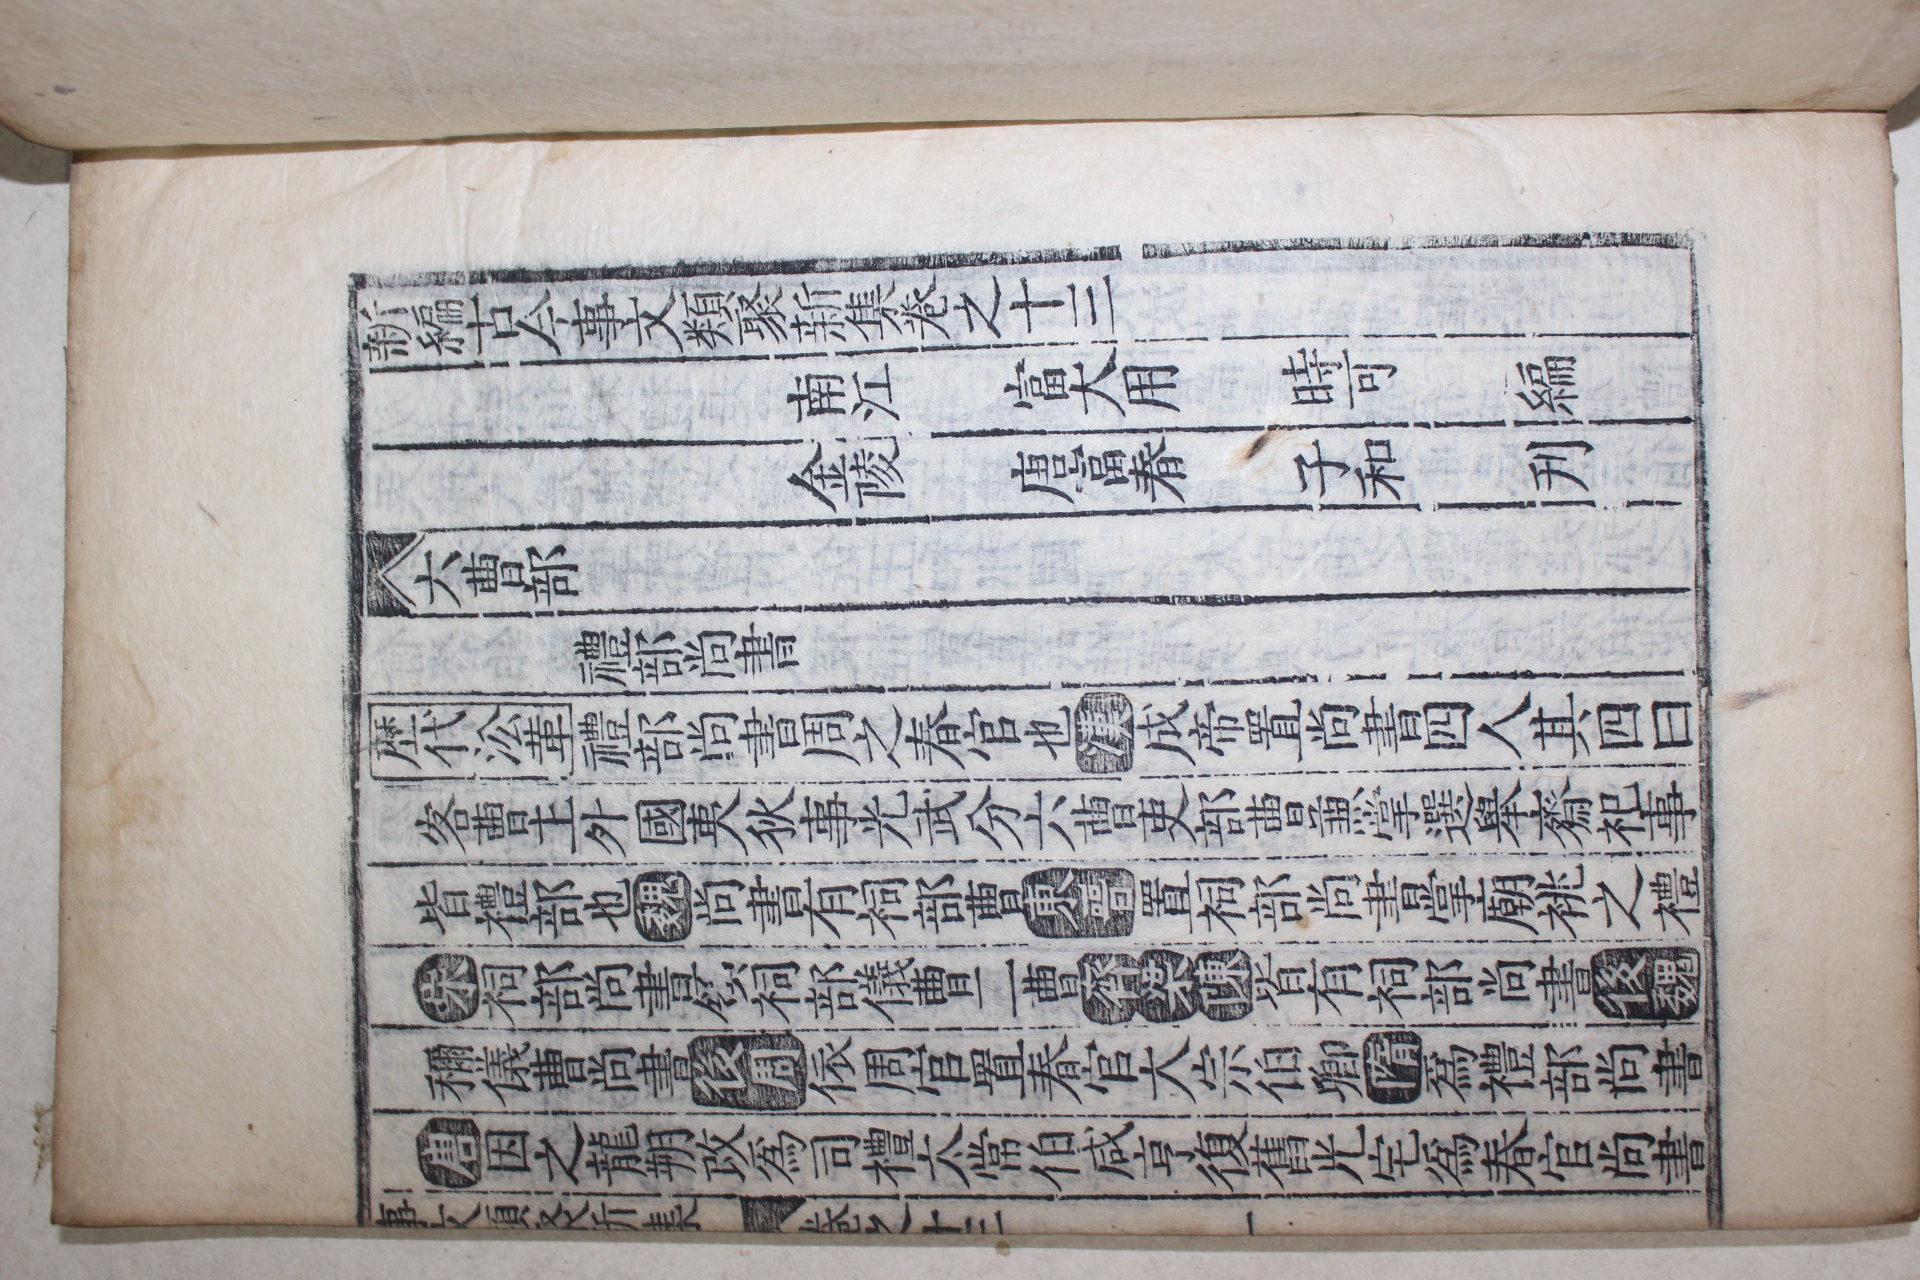 新編古今事文類聚新集卷之十三
南江 富大用 時可 編
金陵 唐富春 子和 刋
六曹部
禮部尚書
歷代沿革 禮部尚書周之春官也漢成帝置尚書四人其四曰
客曹主外國夷狄事光武分六曹吏部曹兼掌選舉齋祀事
皆禮部也魏尚書有祠部曹東晉置祠部尚書掌廟祧之禮
宋祠部尚書領祠部儀曹二曹齊梁陳皆有祠部尚書後魏
稱儀曹尚書後周依周官置春官大宗伯卿隋爲禮部尚書
唐因之龍朔改爲司禮太常伯咸亨復舊光宅爲春官尚書
事文類聚新集 卷之十三 一